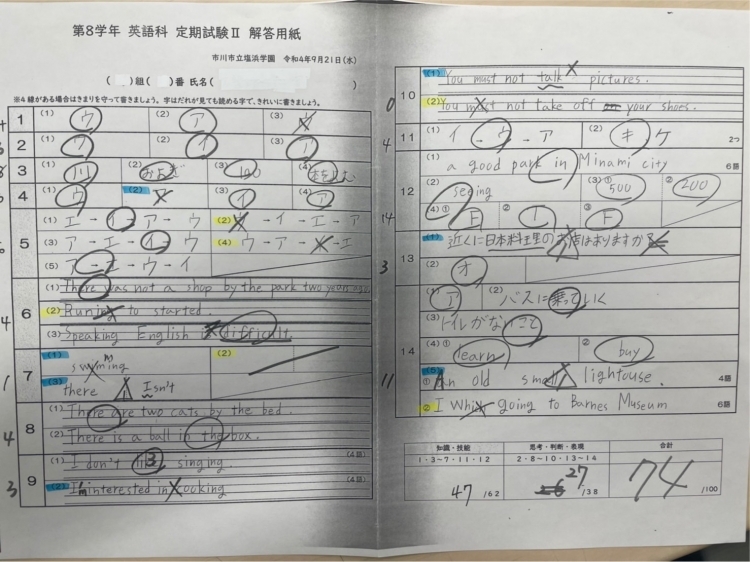 第8学年 英語科 定期試験Ⅱ 解答用紙
市川市立塩浜学園 令和4年9月21日(水)
( )組( )番 氏名( )
※4線がある場合はきまりを守って書きましょう。字はだれが見ても読める字で、きれいに書きましょう。
1 (1) ウ (2) ア (3)
2 (1) ウ (2) イ (3)
3 (1) 川 (2) およぎ (3) 100 (4) 本を読む
4 (1) ウ (2) (3) イ (4) ア
5 (1) エ - イ - ア - ウ (2) - イ - エ - ア
(3) ア - エ - イ - ウ (4) ウ - ア - - エ
(5) ア - エ - ウ - イ
6 (1) There was not a shop by the park two years ago.
4 (2) Runing to started.
(3) Speaking English difficult.
7 (1) swimming (2)
1 (3) there Isn't
8 (1) There are two cats by the bed.
4 (2) There is a ball in the box.
9 (1) I don't singing. (4語)
3 (2) I'm interested in cooking (4語)
10 (1) You must not talk pictures.
0 (2) You must not take off your shoes.
11 (1) イ - ウ - ア (2) キ ケ 2つ
4
12 (1) a good park in Minami city 6語
(2) seeing (3) ① 500 ② 200
14 (4) ① F ② T ③ F
13 (1) 近くに日本料理のお店はありますか
3 (2) オ
14 (1) ア (2) バスに乗っていく
(3) トイレがないこと
(4) ① learn ② buy
11 (5) ① An old small lightouse. 4語
② I going to Barnes Museum 6語
知識・技能 思考・判断・表現 合計
1・3~7・11・12 2・8~10・13~14
47 /62 27 /38 74 /100